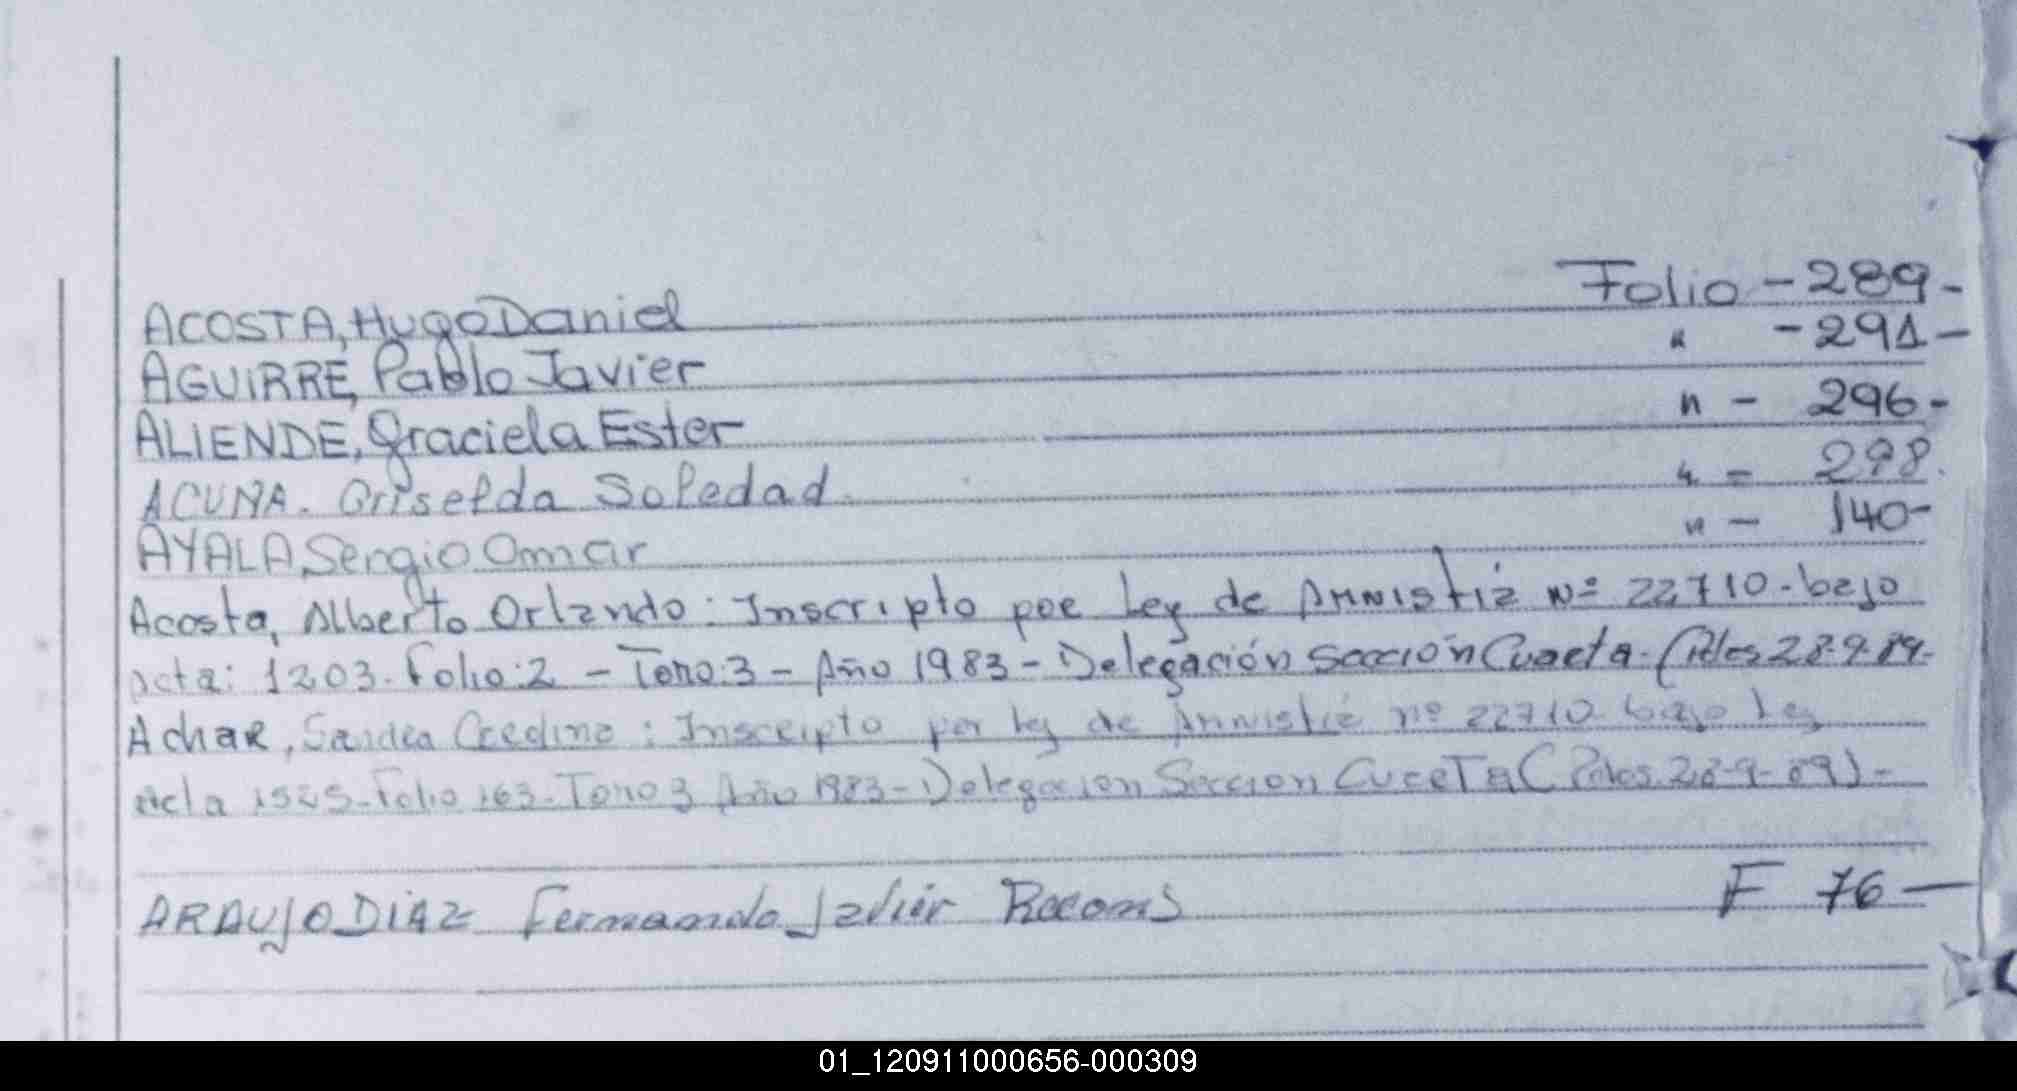 ACOSTA, Hugo Daniel Folio - 289 -
AGUIRRE, Pablo Javier " - 291 -
ALIENDE, Graciela Ester " - 296 -
ACUNA. Griselda Soledad. " - 298.
AYALA, Sergio Omar " - 140 -
Acosta, Alberto Orlando: Inscripto por Ley de Amnistia Nº 22710 - bajo
acta: 1203. Folio: 2 - Tomo: 3 - Año 1983 - Delegación Sección Cuarta - 28-9-89 -
Achar, Sandra : Inscripto por Ley de Amnistia nº 22710 bajo Ley
acta Folio 163 - Tomo 3 Año 1983 - Delegacion Seccion Cuarta ( 28-9-89) -
ARAUJO DIAZ Fernando Javier F 76 -
01_120911000656-000309